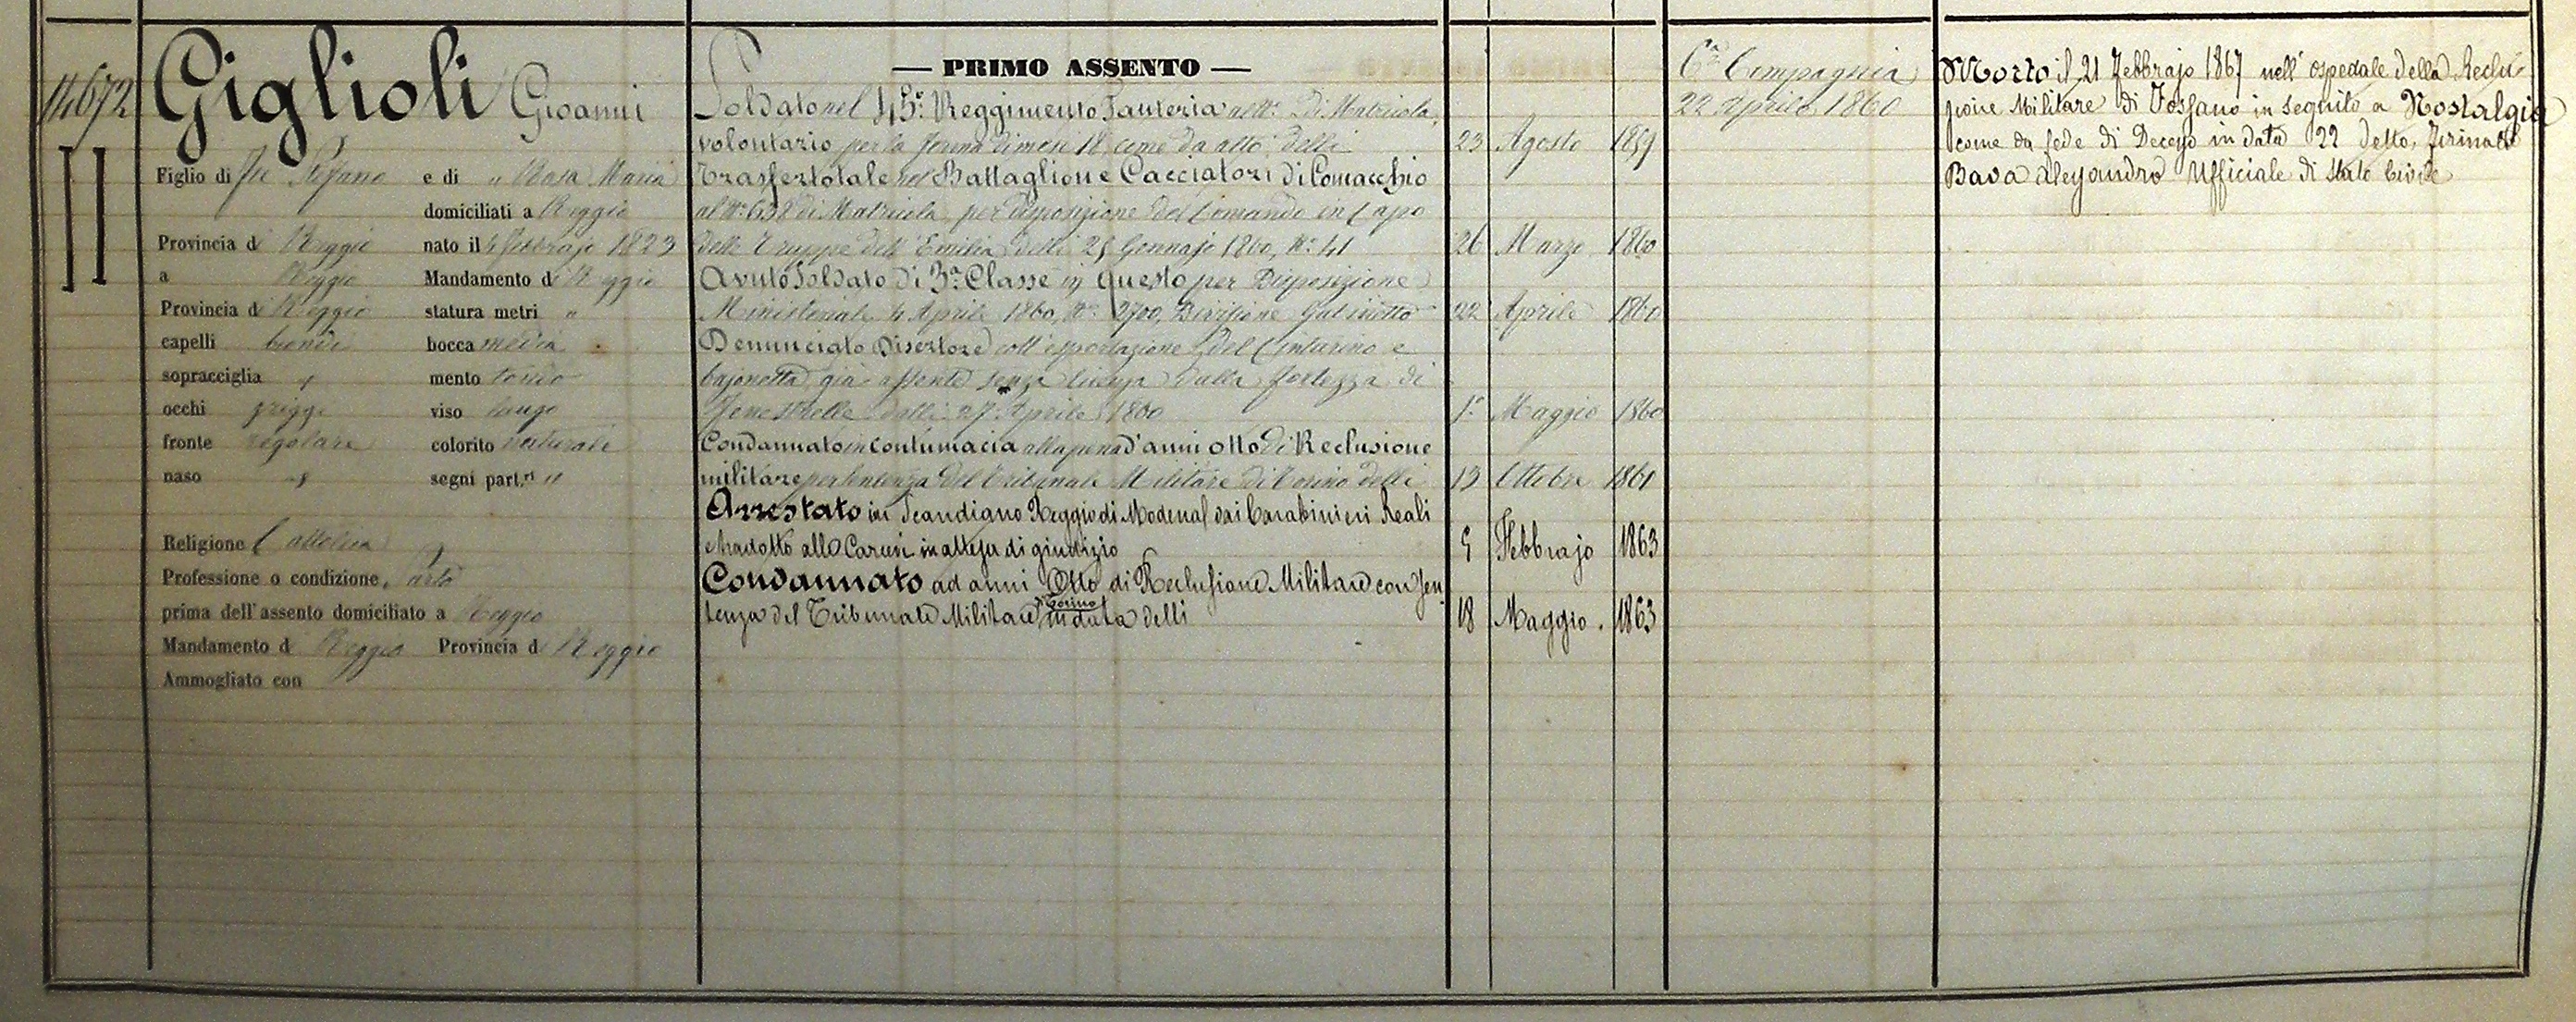 14672
Giglioli Gioanni
Figlio di fu Stefano e di " Rosa Maria
domiciliati a Reggio
Provincia di Reggio nato il 4 febbrajo 1823
a Reggio Mandamento di Reggio
Provincia di Reggio statura metri "
capelli biondi bocca media
sopracciglia " mento tondo
occhi griggi viso lungo
fronte regolare colorito naturale
naso " segni part.ri "
Religione Cattolica
Professione o condizione,
prima dell'assento domiciliato a Reggio
Mandamento di Reggio Provincia di Reggio
Ammogliato con
— PRIMO ASSENTO —
Soldato nel 45º Reggimento Fanteria al Nº di Matricola,
volontario per la ferma di mesi 18 come da atto delli 23 Agosto 1859
Trasferto tale nel Battaglione Cacciatori di Comacchio
al Nº 638 di Matricola per disposizione del Comando in Capo
delle Truppe dell'Emilia delli 25 Gennajo 1860, Nº 41 26 Marzo 1860
Avuto Soldato di 3ª Classe in questo per Disposizione
Ministeriale 4 Aprile 1860, Nº 2700, Divisione Gabinetto 22 Aprile 1860
Denunciato Disertore coll'esportazione del Cinturino e
bajonetta già assente senza licenza dalla fortezza di
Fenestrelle dalli 27 Aprile 1860 1º Maggio 1860
Condannato in contumacia alla pena d'anni otto di Reclusione
militare per sentenza del Tribunale Militare di Torino delli 13 Ottobre 1861
Arrestato in Scandiano Reggio di Modena dai Carabinieri Reali
e tradotto alle Carceri in attesa di giudizio 5 Febbrajo 1863
Condannato ad anni Otto di Reclusione Militare con Sen
tenza del Tribunale Militare di Torino in data delli 18 Maggio 1863
6ª Compagnia
22 Aprile 1860
Morto il 21 Febbrajo 1867 nell'ospedale della Reclu
sione Militare di Fossano in seguito a Nostalgia
come da fede di Decesso in data 22 detto, firmato
Bava Alessandro Ufficiale di stato Civile